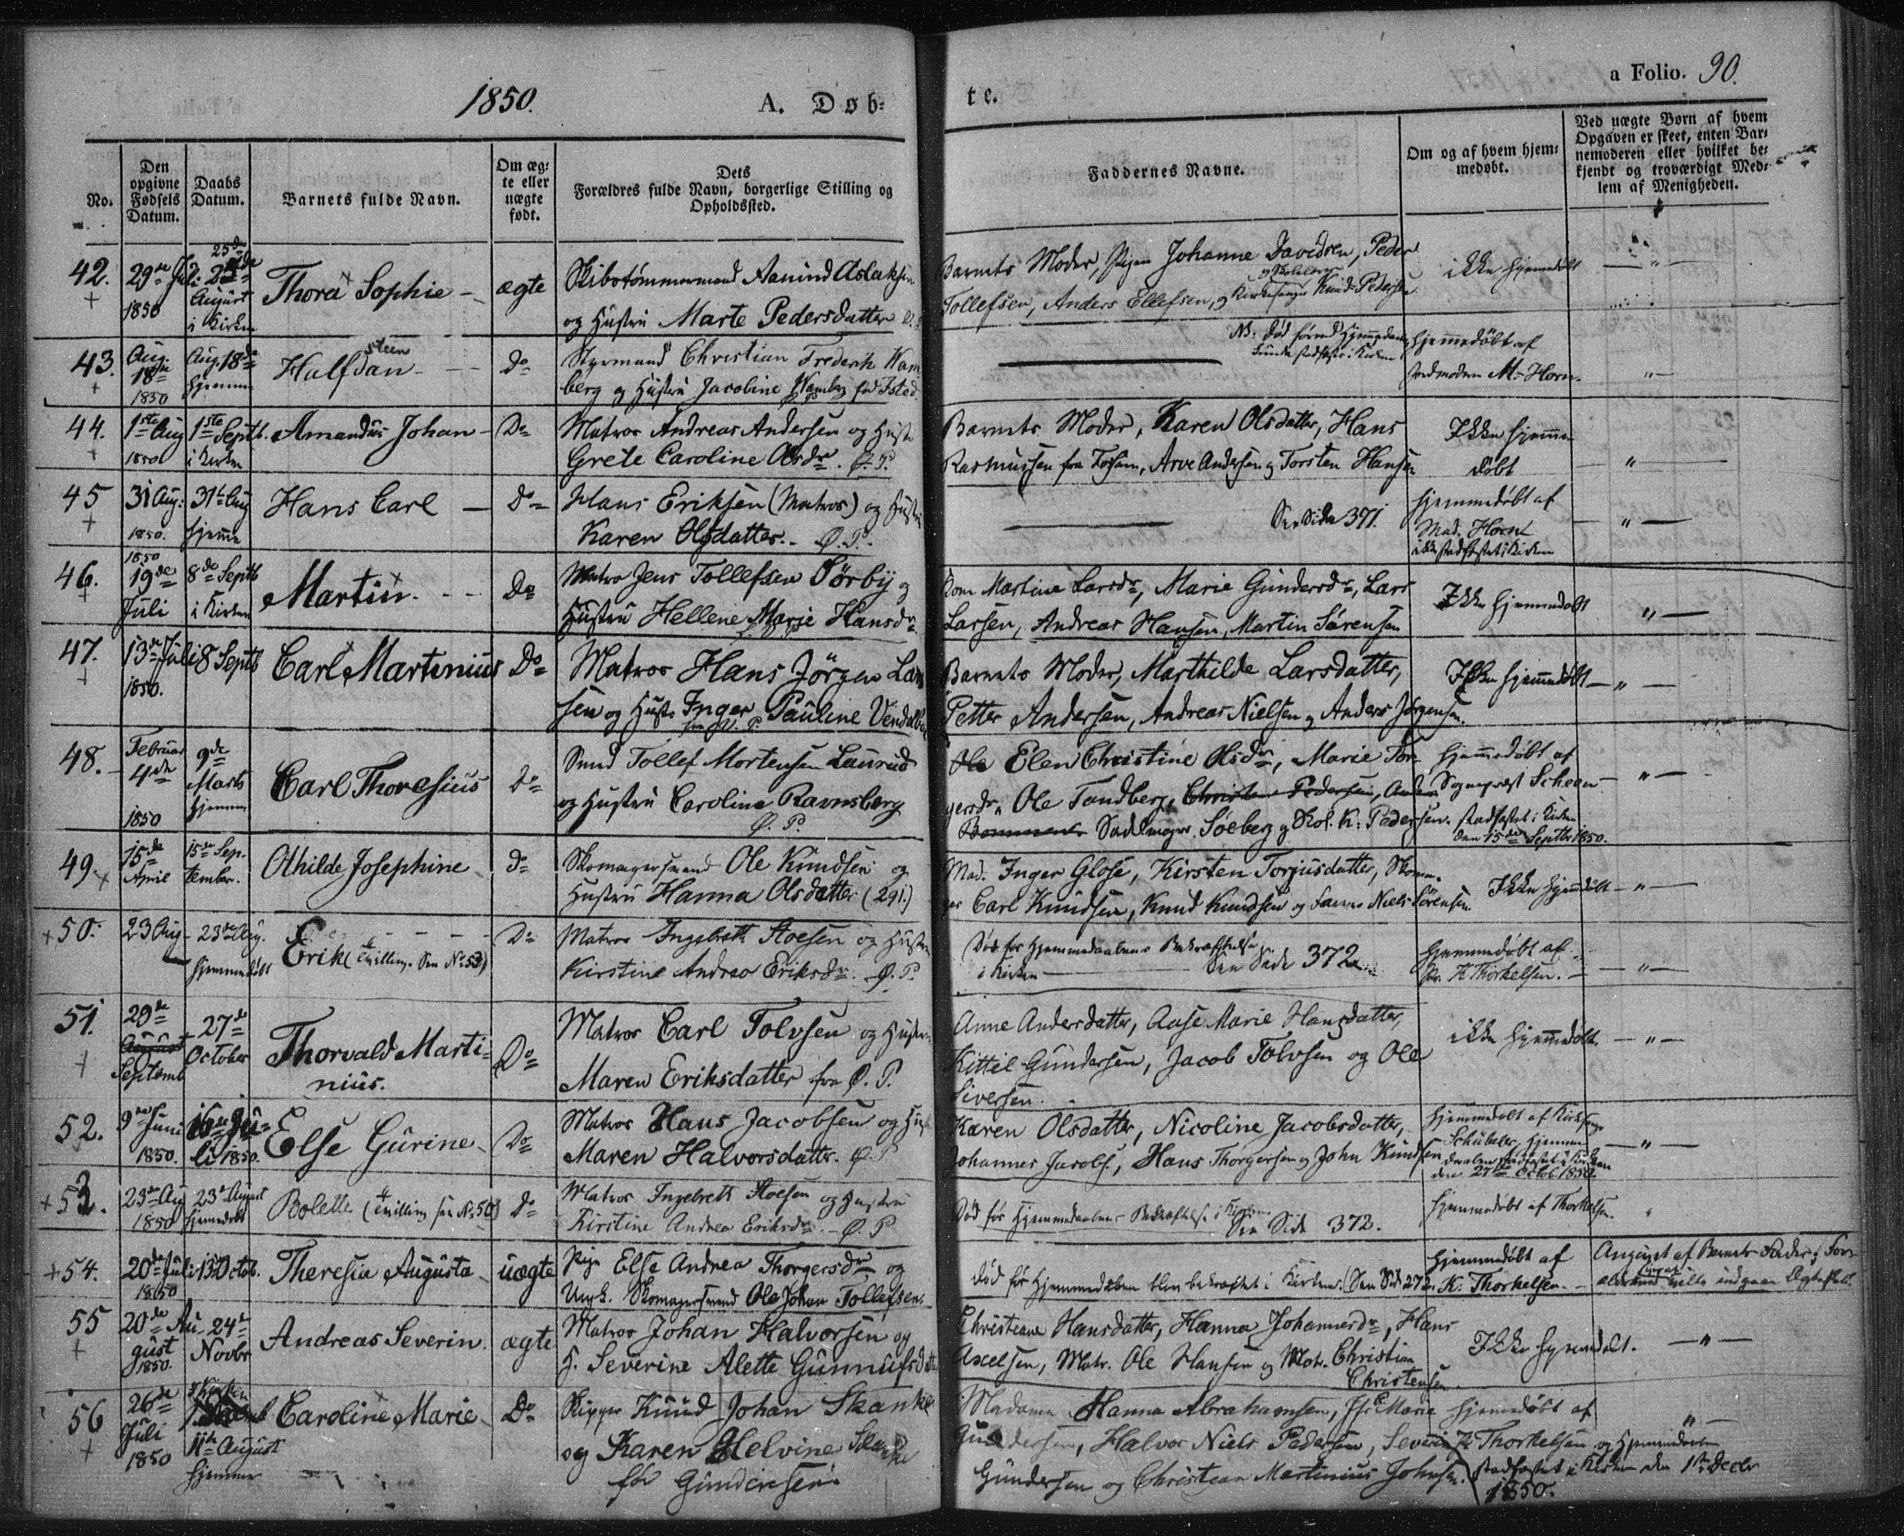 1850.
A. Døb-
te.
a Folio. 90.
No.
Den opgivne Fødsels Datum.
Daabs Datum.
Barnets fulde Navn.
Om ægte eller uægte født.
Dets Forældres fulde Navn, borgerlige Stilling og Opholdssted.
Faddernes Navne.
Om og af hvem hjemmedøbt.
Ved uægte Børn af hvem Opgaven er skeet, enten Barnemoderen eller hvilket bekjendt og troværdigt Medlem af Menigheden.
42. 29de Juli 1850 25de August i Kirken Thora Sophie ægte Skibstømmermand Aanund Aslaksen
og Hustru Marte Pedersdatter
Barnets Moder, Pigen Johanne Davidsen, Peder
Tollefsen, Anders Ellefsen, og Kirkesanger Knud Pedersen
ikke hjemmedøbt
43. Aug. 18de 1850 Aug. 18de hjemme Halfdan Steen Do Styrmand Christian Frederik Wam-
berg og Hustru Jacobine Wamberg fød Isted
NB. Død førend Hjemmedaaben
kunde stadfæstes i Kirken
hjemmedøbt af
Jordmoderen M. Horn.
44. 1ste Aug 1850 1ste Septb. i Kirken Amandus Johan Do Matros Andreas Andersen og Hustr
Grete Caroline Olsdr. Ø.P.
Barnets Moder, Karen Olsdatter, Hans
Rasmussen, Arve Andersen og Torsten Hansen
Ikke hjemme
døbt
45 31 Aug. 1850. 31te Aug hjemme Hans Carl Do Hans Eriksen (Matros) og Hustru
Karen Olsdatter. Ø.P.
See Side 371.
hjemmedøbt af
Mad. Horn
ikke stadfæstet i Kirken
46. 1850 19de Juli 8de Septb i Kirken Martin. Do Matros Jens Tollefsen Sørby og
Hustru Hellene Marie Hansdr
Kone Martine Larsdr, Marie Gundersdr, Lars
Larsen, Andreas Hansen, Martin Sørensen
Ikke hjemmedøbt
47. 13de Juli 1850. 8 Septb Carl Martinius Do Matros Hans Jørgen Lar
sen og Hustr. Inger Pauline
Barnets Moder, Marthilde Larsdatter,
Petter Andersen, Andreas Nielsen og Anders Jørgensen.
Ikke hjemmedøbt
48. Februar 4de 1850 9de Marts hjemme Carl Thoresius Do Smed Tollef Mortensen Laurud
og Hustru Caroline Ravnsberg
Ø.P.
Elen Christine Olsdr, Marie Tor-
gersdr, Ole Tandberg, Christen Pedersen,
Sadelmager Søeberg og Skol. K. Pedersen.
hjemmedøbt af
Sogneprest Scheen
stadfæstet i Kirken
den 15de Septbr 1850.
49 15de April 15de September. Othilde Josephine Do Skomagersvend Ole Knudsen og
Hustru Hanna Olsdatter (291.)
Mad. Inger Glose, Kirsten Torjusdatter, Skoma-
ger Carl Knudsen, Knud Knudsen og Niels Sørensen
Ikke hjemmedøbt
50. 23 Aug 23de Aug. hjemmedøbt Erik (Tvilling. See No 53) Do Matros Ingebreth Aoesen og Hustru
Kirstine Andrea Eriksdr. Ø.P.
Død før Hjemmedaabens Bekræftelse
i Kirken See Side 372
hjemmedøbt af
K. Thorkelsen.
51. 29de August Septemb 27de October Thorvald Marti-
nius. Do Matros Carl Tolvsen og Hustru
Maren Eriksdatter fra Ø.P.
Anne Andersdatter, Aase Marie Hansdatter,
Kittil Gundersen, Jacob Tolvsen og Ole
Siversen.
ikke hjemmedøbt.
52. 9de Juni 1850. 16de Juli 1850. Else Gurine Do Matros Hans Jacobsen og Hust
Maren Halvorsdatter. Ø.P
Karen Olsdatter, Nicoline Jacobsdatter,
Johannes Jacobs, Hans Thorgersen og John Knudsen
hjemmedøbt af Kirkes.
Schubeler, hjemme-
daaben stadfæstet i Kirken
den 27de Octob 1850.
53. 23de Aug 1850 23de August hjemmedøbt Bolette (Tvilling see No 50) Do Matros Ingebreth Aoesen og Hustru
Kirstine Andrea Eriksdr. Ø.P
Død før Hjemmedaabens Bekræftelse i Kirken
See Side 372.
hjemmedøbt af Thorkelsen.
54. 20de Juli 1850 13 Octob. Theresia Augusta uægte Pige Else Andrea Thorgersdr og
Ungk. Skomagersvend Ole Johan Tollefsen
død før Hjemmedaaben blev bekræftet i Kirken. (See Side 372.
hjemmedøbt af
K. Thorkelsen.
Angivet af Barnets Fader
55 20de August 1850. 24de Novbr Andreas Severin. ægte Matros Johan Halvorsen og
H. Severine Alette Gunnulfsdatt
Christiane Hansdatter, Hanna Johannesdr, Hans
Axelsen, Matr. Ole Hansen og Matr. Christian
Christensen
Ikke hjemmedøbt.
56 26de Juli 1850 11te August hjemme Caroline Marie Do Skipper Knud Johan Skanke
og Karen Helvine Skanke
før Gundersen.
Madame Hanna Abrahamsen, Marie
Gundersen, Halvor Niels Pedersen, Severin
Gundersen og Christean Martinius Johnsen.
hjemmedøbt af
K. Thorkelsen og hjemmedaaben
stadfæstet i Kirken den 1ste Decbr
1850.